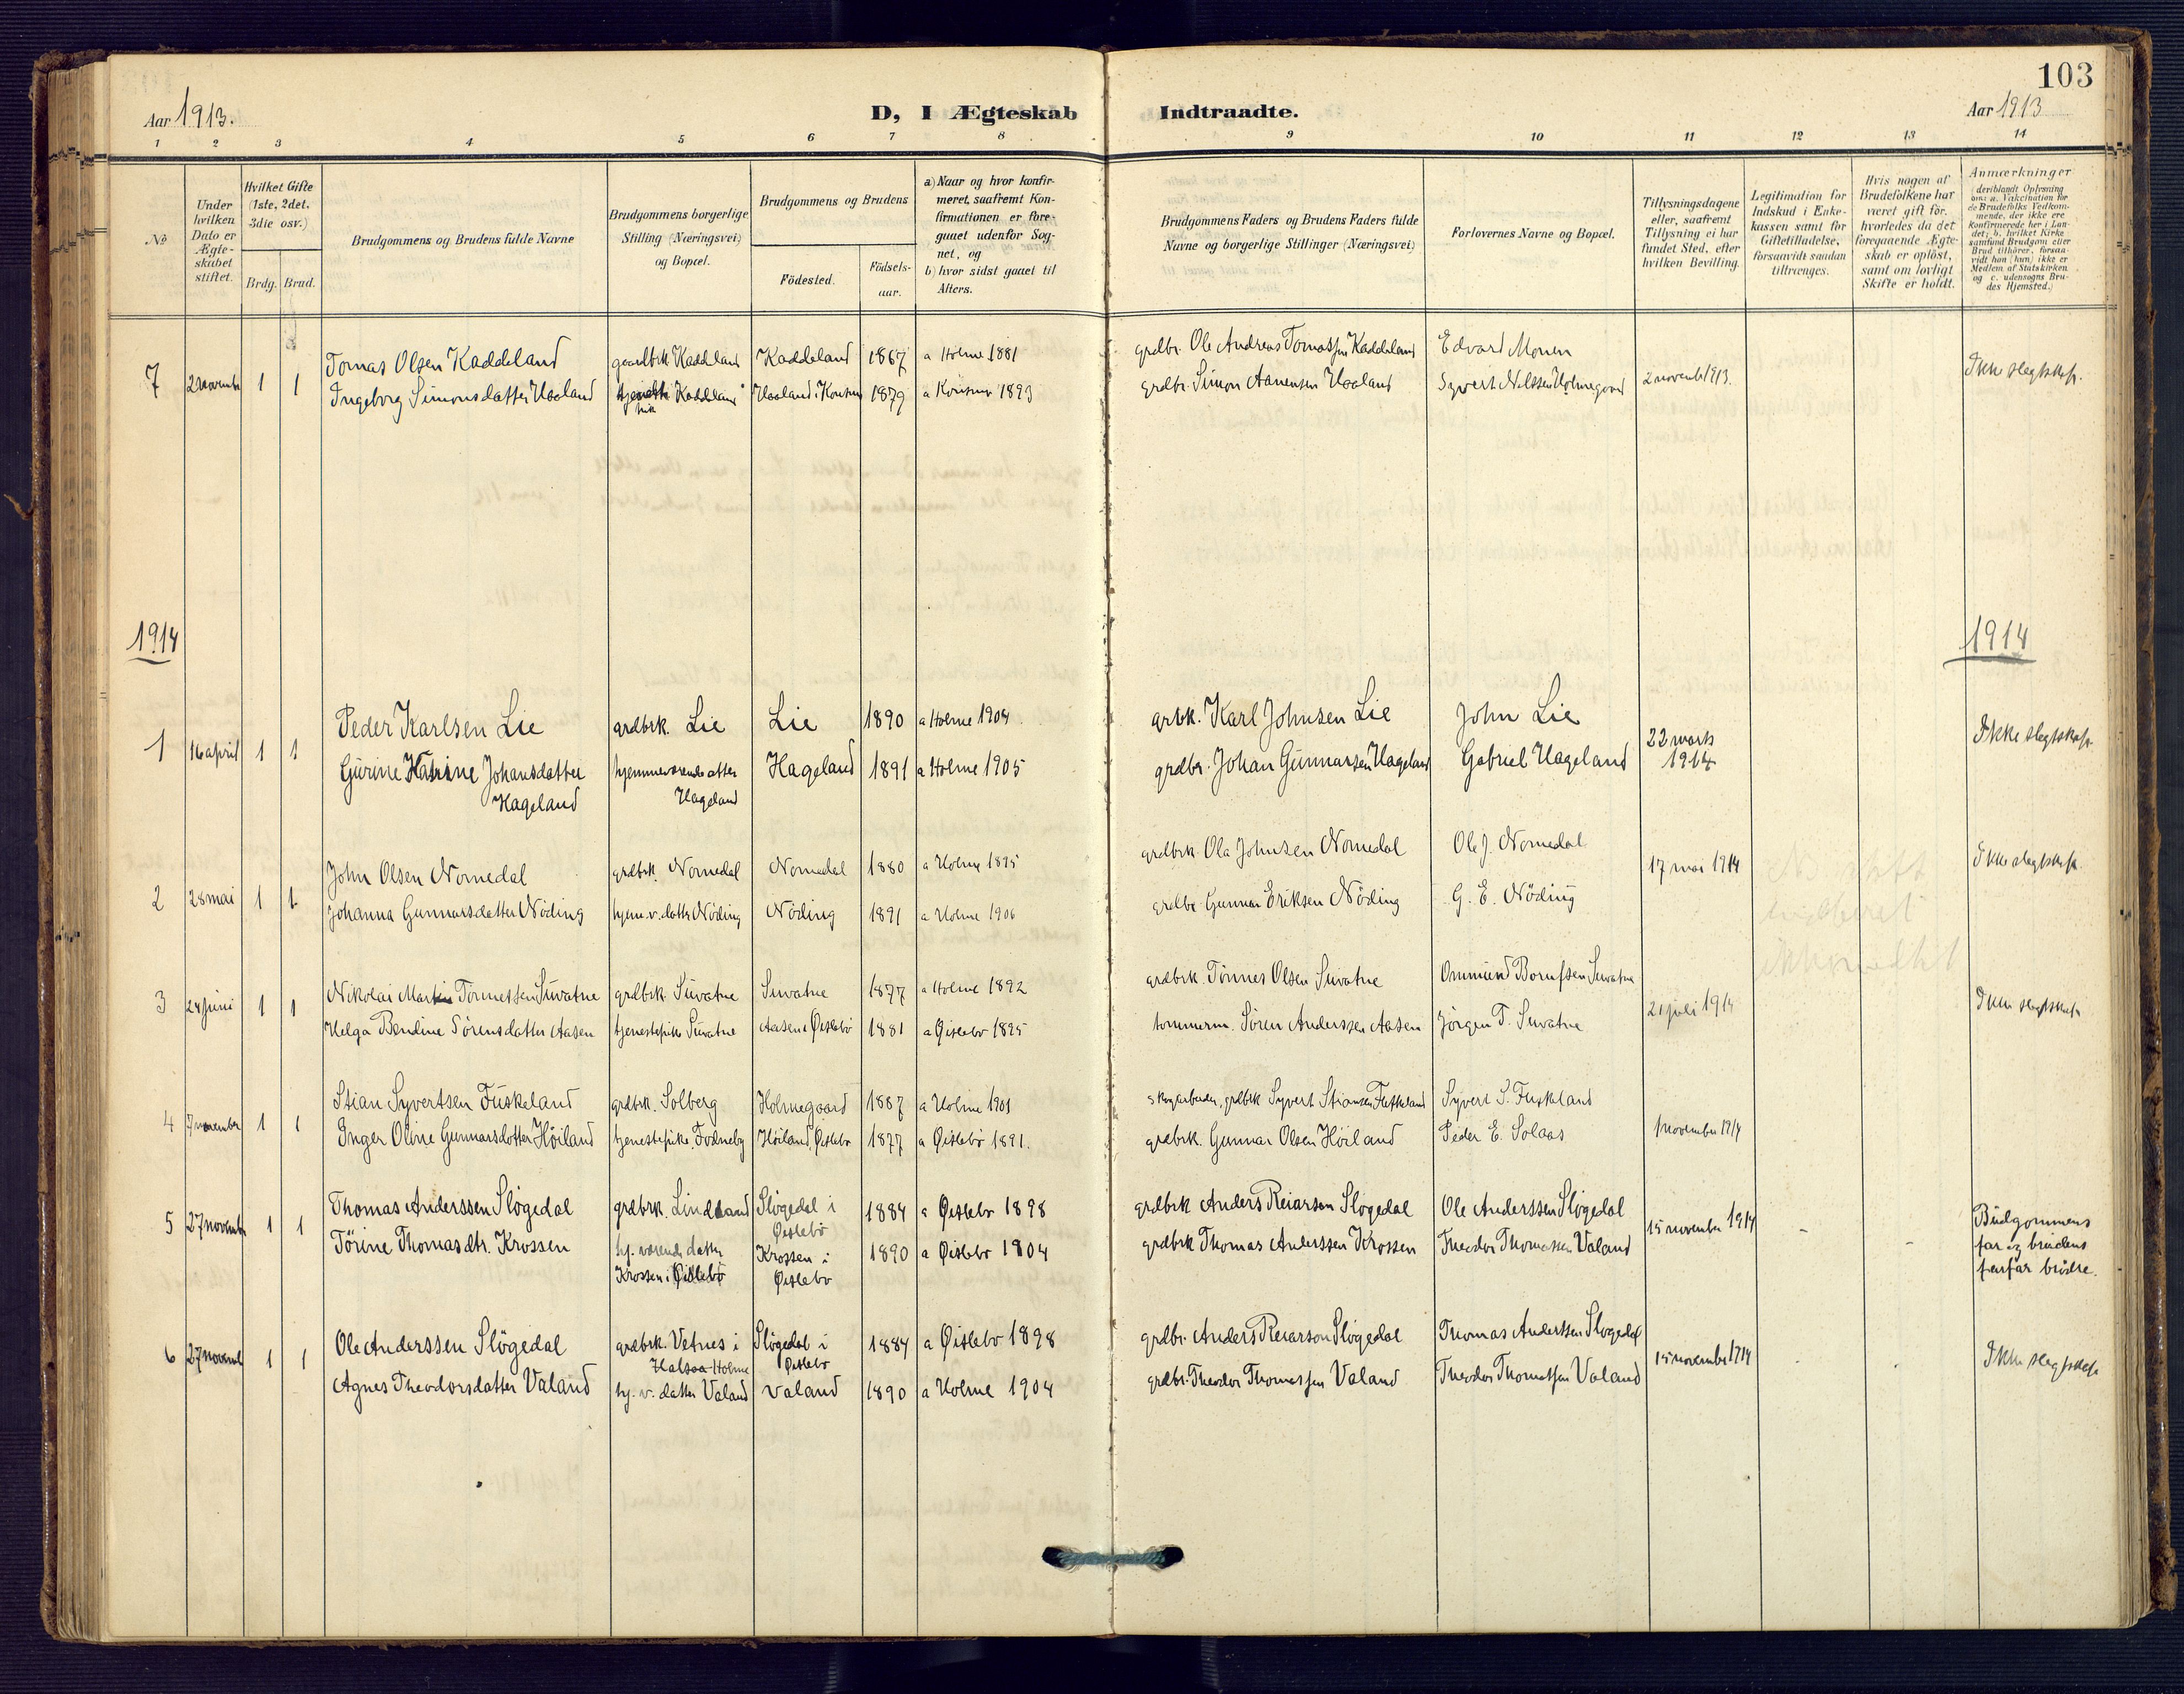 103
Aar 1913.
D, I Ægteskab Indtraadte.
Aar 1913
1 2 3 4 5 6 7 8 9 10 11 12 13 14
No
Under hvilken Dato er Ægteskabet stiftet.
Hvilket Gifte (1ste, 2det, 3die osv.)
Brdg. Brud.
Brudgommens og Brudens fulde Navne
Brudgommens borgerlige Stilling (Næringsvei) og Bopæl.
Brudgommens og Brudens
Födested.
Födselsaar.
a) Naar og hvor konfirmeret, saafremt Konfirmationen er foregaaet udenfor Sognet, og
b) hvor sidst gaaet til Alters.
Brudgommens Faders og Brudens Faders fulde Navne og borgerlige Stillinger (Næringsvei)
Forlovernes Navne og Bopæl.
Tillysningsdagene eller, saafremt Tillysning ei har fundet Sted, efter hvilken Bevilling.
Legitimation for Indskud i Enkekassen samt for Giftetilladelse, forsaavidt saadan tiltrænges.
Hvis nogen af Brudefolkene har været gift för, hvorledes da det foregaaende Ægteskab er oplöst, samt om lovligt Skifte er holdt.
Anmærkninger (deriblandt Oplysning om: a. Vakcination for de Brudefolks Vedkommende, der ikke ere Konfirmerede her i Landet; b. hvilket Kirkesamfund Brudgom eller Brud tilhörer, forsaavidt han (hun) ikke er Medlem af Statskirken og c. udensogns Brudes Hjemsted.)
7 2 novembr 1 1
Tomas Olsen Kaddeland gaardbrk Kaddeland Kaddeland 1867 a Holme 1881 grdbr. Ole Andreas Tomassen Kaddeland Edvard Monen
Ingeborg Simonsdatter Haaland Kaddeland Haaland i Konsmo 1879 a Konsmo 1893 grdbr. Simon Aanensen Haaland Syvert Nilssen Holmegaard 2 novemb 1913. Ikke slegtskap.
1914 1914
1 16 april 1 1
Peder Karlsen Lie grdbrk. Lie Lie 1890 a Holme 1904 grbk. Karl Johnsen Lie John Lie
Gurine Katrine Johansdatter Hageland hjemmeværende datter Hageland Hageland 1891 a Holme 1905 grdbr. Johan Gunnarsen Hageland Gabriel Hageland 22 mars 1914 Ikke slegtskap.
2 28 mai 1 1
John Olsen Nomedal grdbrk. Nomedal Nomedal 1880 a Holme 1895 grdbrk. Ola Johnsen Nomedal Ole J. Nomedal
Johanna Gunnarsdatter Nöding hjem.v. datter Nöding Nöding 1891 a Holme 1906 grdbr Gunnar Eriksen Nöding G. E. Nöding 17 mai 1914 Ikke slegtskap.
3 24 juni 1 1
Nikolai Martin Tönnessen Suvatne grdbrk. Suvatne Suvatne 1877 a Holme 1892 grdbrk. Tönnes Olsen Suvatne Ommund Suvatne
Helga Bendine Sörensdatter Aasen tjenestepike Suvatne Aasen i Øislebö 1881 a Øislebö 1895 tommerm. Sören Anderssen Aasen Jörgen T. Suvatne 21 juli 1914 Ikke slegtskap
4 7 november 1 1
Stian Syvertsen Fuskeland grdbrk. Solberg Holmegaard 1887 a Holme 1901 skogarbeider, grdbrk Syvert Stiansen Fuskeland Syvert S. Fuskland
Inger Oline Gunnarsdatter Höiland tjenestepike Fodneby Höiland, Øislebö 1877 a Øislebö 1891. grdbrk. Gunnar Olsen Höiland Peder E. Solaas 1 november 1914
5 27 novemb 1 1
Thomas Anderssen Slögedal grdbrk. Lindland Slögedal i Øislebö 1884 a Øislebö 1898 grdbrk Anders Reiarson Slögedal Ole Anderssen Slögedal
Törine Thomasdtr. Krossen hj. værende datter Krossen i Øislebö Krossen i Øislebö 1890 a Øislebö 1904 grdbrk Thomas Anderssen Krossen Theodor Thomassen Valand 15 november 1914
Budgommens far og brudens farfar brödre.
6 27 novemb 1 1
Ole Anderssen Slögedal grdbrk. Vetnes i Halsaa-Holme Slögedal i Øislebö 1884 a Øislebö 1898 grdbr. Anders Reiarson Slögedal Thomas Anderssen Slögedal
Agnes Theodorsdatter Valand hj. v. datter Valand Valand 1890 a Holme 1904 grdbr. Theodor Thomassen Valand Theodor Thomassen Valand 15 november 1914 Ikke slegtskap